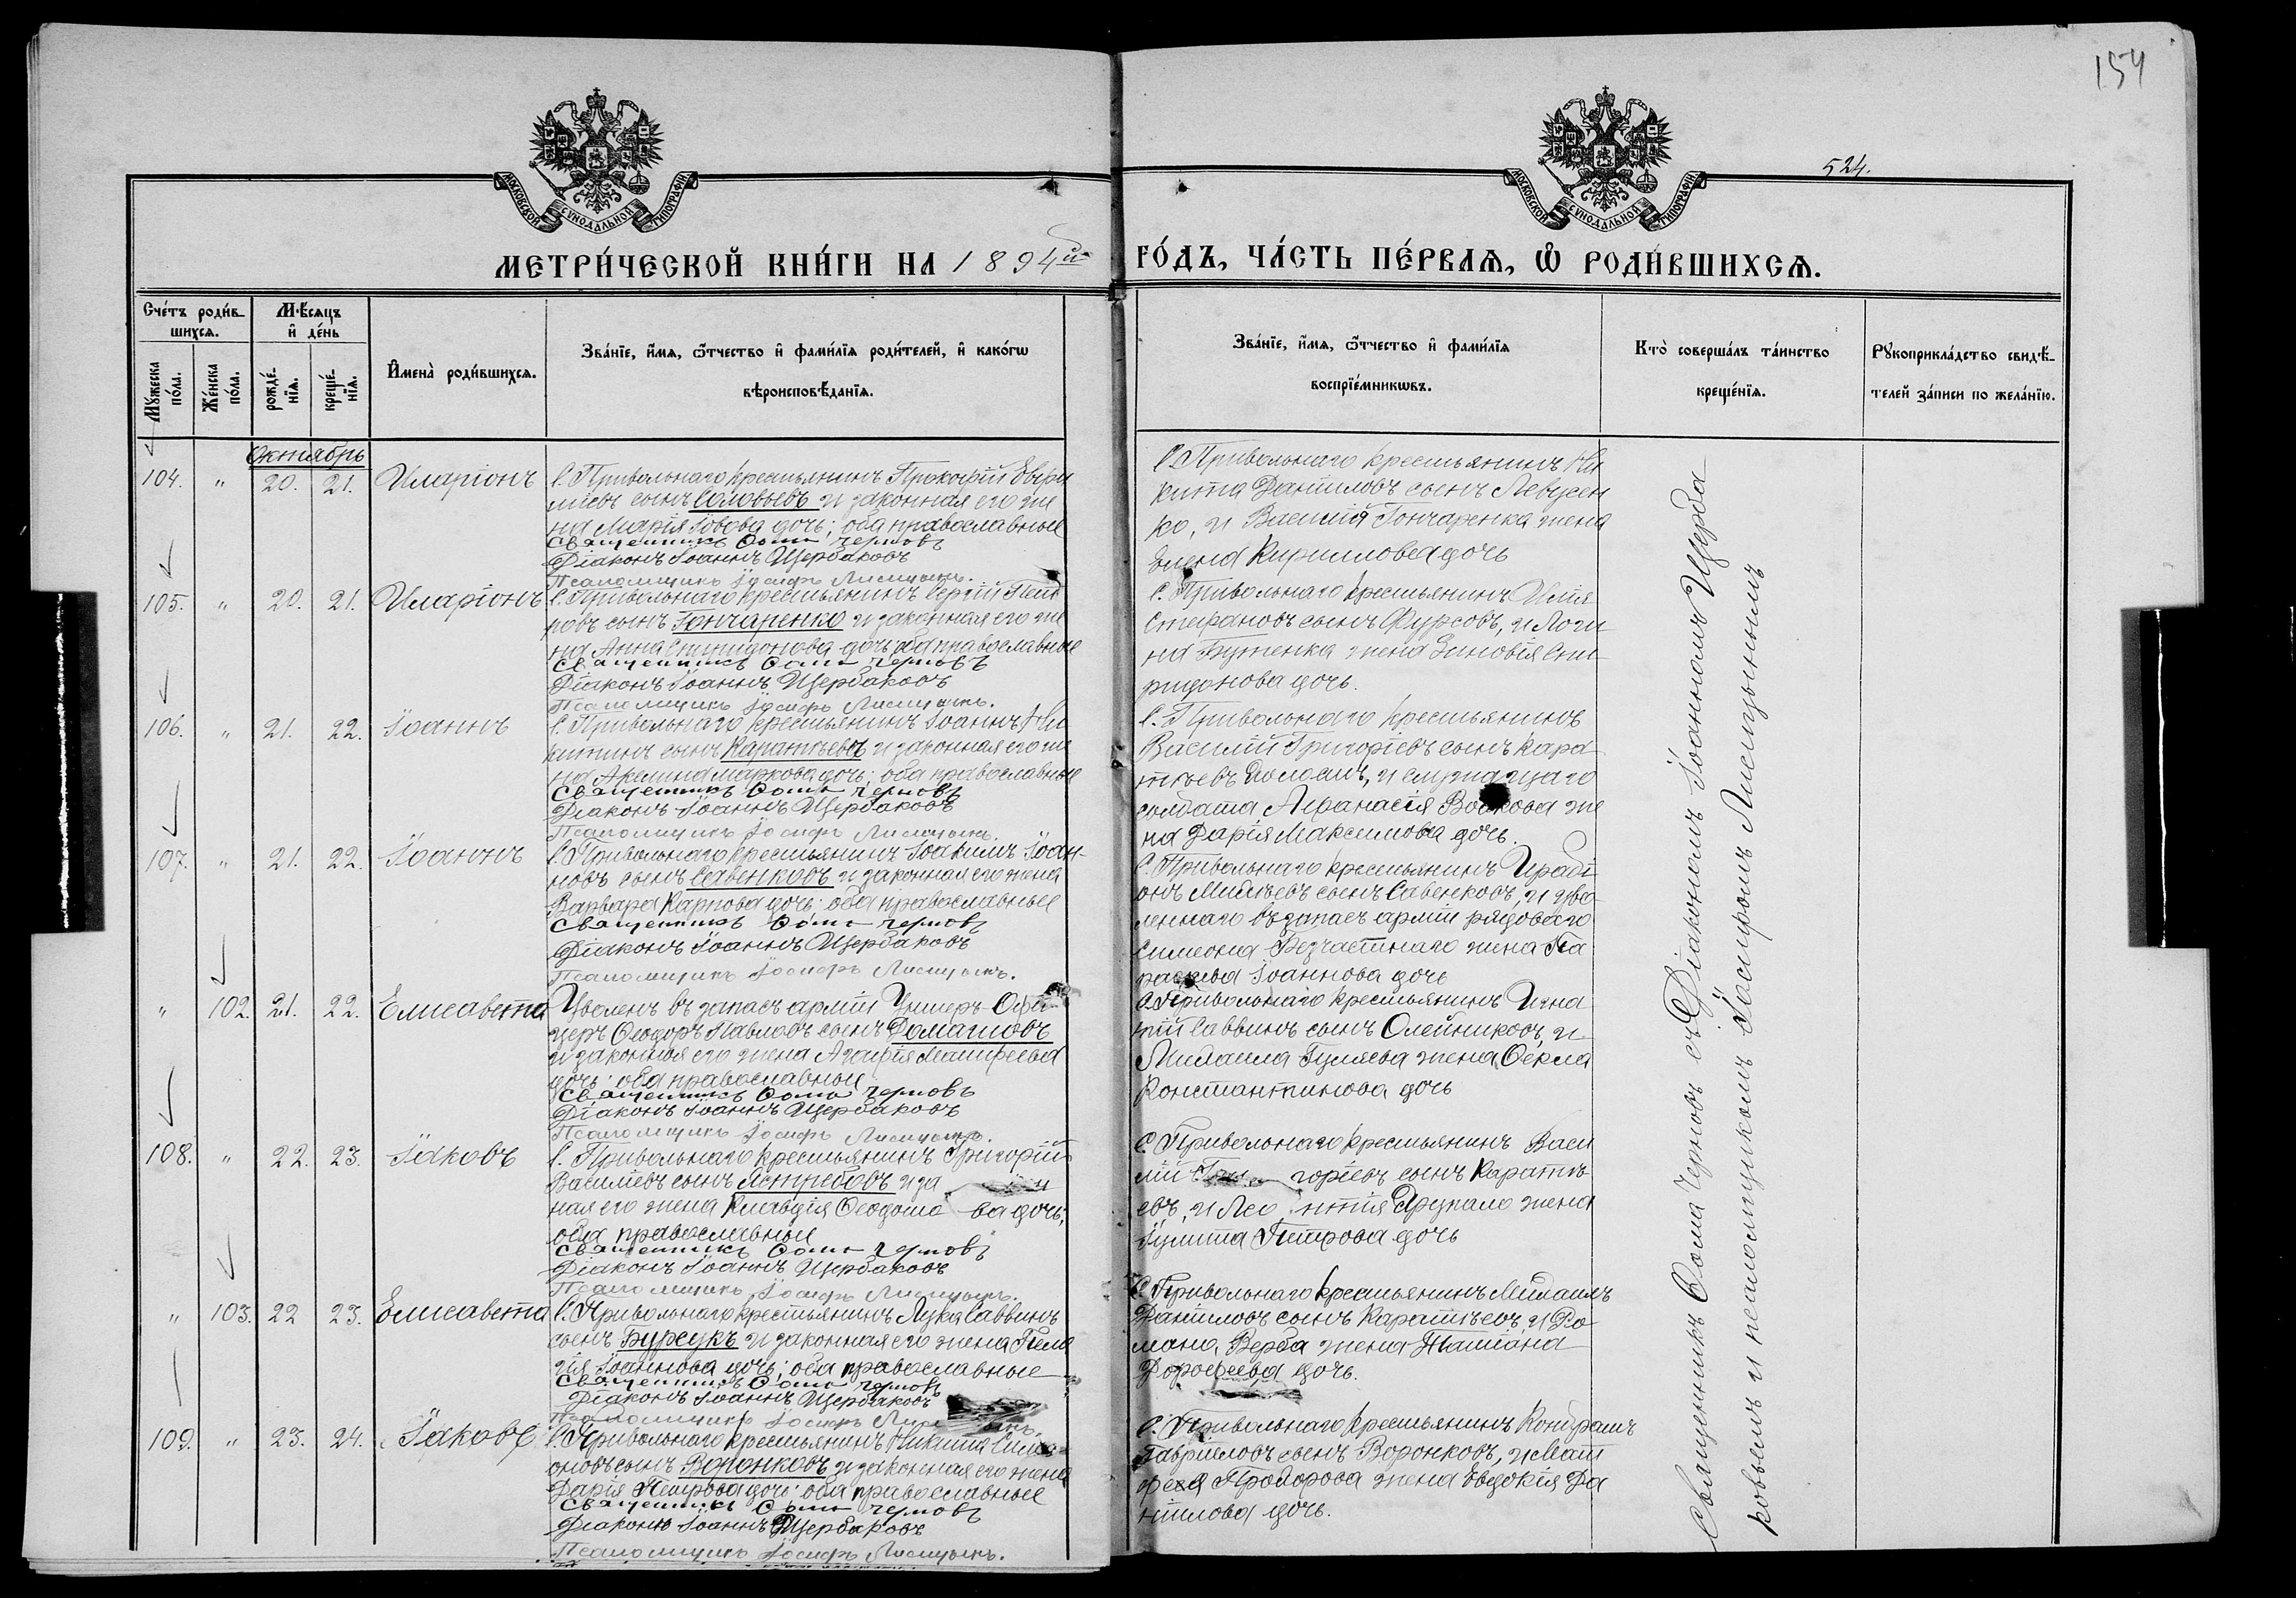 154
524.
МОСКОВСКОЙ СУНОДАЛЬНОЙ ТИПОГРАФІИ
МОСКОВСКОЙ СУНОДАЛЬНОЙ ТИПОГРАФІИ
МЕТРИ́ЧЕСКОЙ КНИ́ГИ НА 1894й
ГО́ДЪ, ЧА́СТЬ ПЕ́РВАѦ, Ѽ РОДИ́ВШИХСѦ.
Сче́тъ роди́в-
шихсѧ.
Мꙋ́жеска
по́ла.
Же́нска
по́ла.
Мѣ́сѧцъ
и҆ де́нь
рожде́-
нїѧ.
креще́-
нїѧ.
И҆мена̀ роди́вшихсѧ.
Зва́нїе, и҆́мѧ, ѻ҆́тчество и҆ фамі́лїѧ роди́телей, и҆ како́гѡ
вѣроисповѣ́данїѧ.
Зва́нїе, и҆́мѧ, ѻ҆́тчество и҆ фамі́лїѧ
воспрїе́мникѡвъ.
Кто̀ соверша́лъ та́инство
креще́нїѧ.
Рꙋкоприкла́дство свидѣ́-
телей за́писи по жела́нїю.
Октябрь
104. " 20. 21. Иларіонъ
С. Привольнаго крестьянинъ Прокофій Евфи
міевъ сынъ Соловьевъ и законная его же
на Марія Іовова дочь; оба православные
Священникъ Ѳома Черновъ
Діаконъ Іоаннъ Щербаковъ
Псаломщикъ Іосифъ Лисицынъ.
С. Привольнаго крестьянинъ Ни
кита Даниловъ сынъ Левусен
ко, и Василія Гончаренка жена
Елена Кириллова дочь
105. " 20. 21. Иларіонъ
С. Привольнаго крестьянинъ Сергій Пет
ровъ сынъ Гончаренко и законная его же
на Анна Спиридонова дочь; оба православные
Священникъ Ѳома Черновъ
Діаконъ Іоаннъ Щербаковъ
Псаломщикъ Іосифъ Лисицынъ.
С. Привольнаго крестьянинъ Илія
Стефановъ сынъ Фурсовъ, и Логи
на Бутенка жена Зиновія Спи
ридонова дочь.
106. " 21. 22. Іоаннъ
С. Привольнаго крестьянинъ Іоаннъ Ни
китинъ сынъ Каратѣевъ и законная его же
на Акелина Маркова дочь; оба православные
Священникъ Ѳома Черновъ
Діаконъ Іоаннъ Щербаковъ
Псаломщикъ Іосифъ Лисицынъ.
С. Привольнаго крестьянинъ
Василій Григоріевъ сынъ Кара
тѣевъ и служащаго
солдата Аѳанасія Волкова же
на Дарія Максимова дочь.
107. " 21. 22. Іоаннъ
С. Привольнаго крестьянинъ Іоакимъ Іоан-
новъ сынъ Савенковъ и законная его жена
Варвара Карпова дочь; оба православные
Священникъ Ѳома Черновъ
Діаконъ Іоаннъ Щербаковъ
Псаломщикъ Іосифъ Лисицынъ.
С. Привольнаго крестьянинъ Иради
онъ сынъ Савенковъ, и уво
леннаго въ запасъ арміи рядоваго
Симеона Безчастнаго жена Па
раскева Іоаннова дочь
" 102. 21. 22. Елисавета
Уволенъ въ запасъ арміи Унтеръ-Офи
церъ Ѳеодоръ Павловъ сынъ Домашовъ
и законная его жена Агафія Матфеева
дочь; оба православные
Священникъ Ѳома Черновъ
Діаконъ Іоаннъ Щербаковъ
Псаломщикъ Іосифъ Лисицынъ.
С. Привольнаго крестьянинъ Игна
тій Саввинъ сынъ Олейниковъ, и
Михаила Гуляева жена Ѳекла
Константинова дочь
108. " 22. 23. Іаковъ
С. Привольнаго крестьянинъ Григорій
Василіевъ сынъ Ястребовъ и за
ная его жена Клавдія Ѳеодосіева дочь;
оба православные
Священникъ Ѳома Черновъ
Діаконъ Іоаннъ Щербаковъ
Псаломщикъ Іосифъ Лисицынъ.
С. Привольнаго крестьянинъ Васи
лій Григоріевъ сынъ Каратѣ
евъ, и Леонтія жена
Іулита Петрова дочь
" 103. 22 23. Елисавета
С. Привольнаго крестьянинъ Лука Саввинъ
сынъ Бурсукъ и законная его жена Пела
гія Іоаннова дочь; оба православные
Священникъ Ѳома Черновъ
Діаконъ Іоаннъ Щербаковъ
Псаломщикъ Іосифъ
С. Привольнаго крестьянинъ Михаилъ
Даниловъ сынъ Каратѣевъ, и Ро
мана Верба жена Татіана
Дорофеева дочь.
109. " 23. 24. Іаковъ
С. Привольнаго крестьянинъ Никита Симе
оновъ сынъ Воронковъ и законная его жена
Дарія Петрова дочь; оба православные
Священникъ Ѳома Черновъ
Діаконъ Іоаннъ Щербаковъ
Псаломщикъ Іосифъ Лисицынъ.
С. Привольнаго крестьянинъ Кондратъ
Гавриловъ сынъ Воронковъ, и Мат
фея Прохорова жена Евдокія Да
нилова дочь.
Священникъ Ѳома Черновъ съ Діакономъ Іоанномъ Щерба
ковымъ и псаломщикомъ Іосифомъ Лисицынымъ